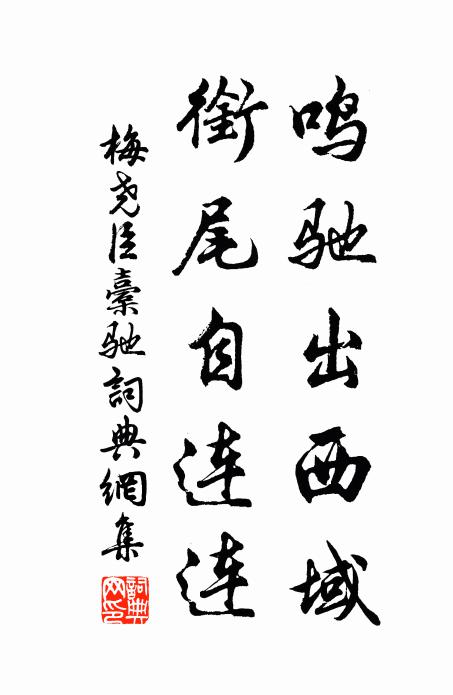 鸣驰出西域
銜尾自连连
梅尧臣橐驰詞典網集
詞典网印